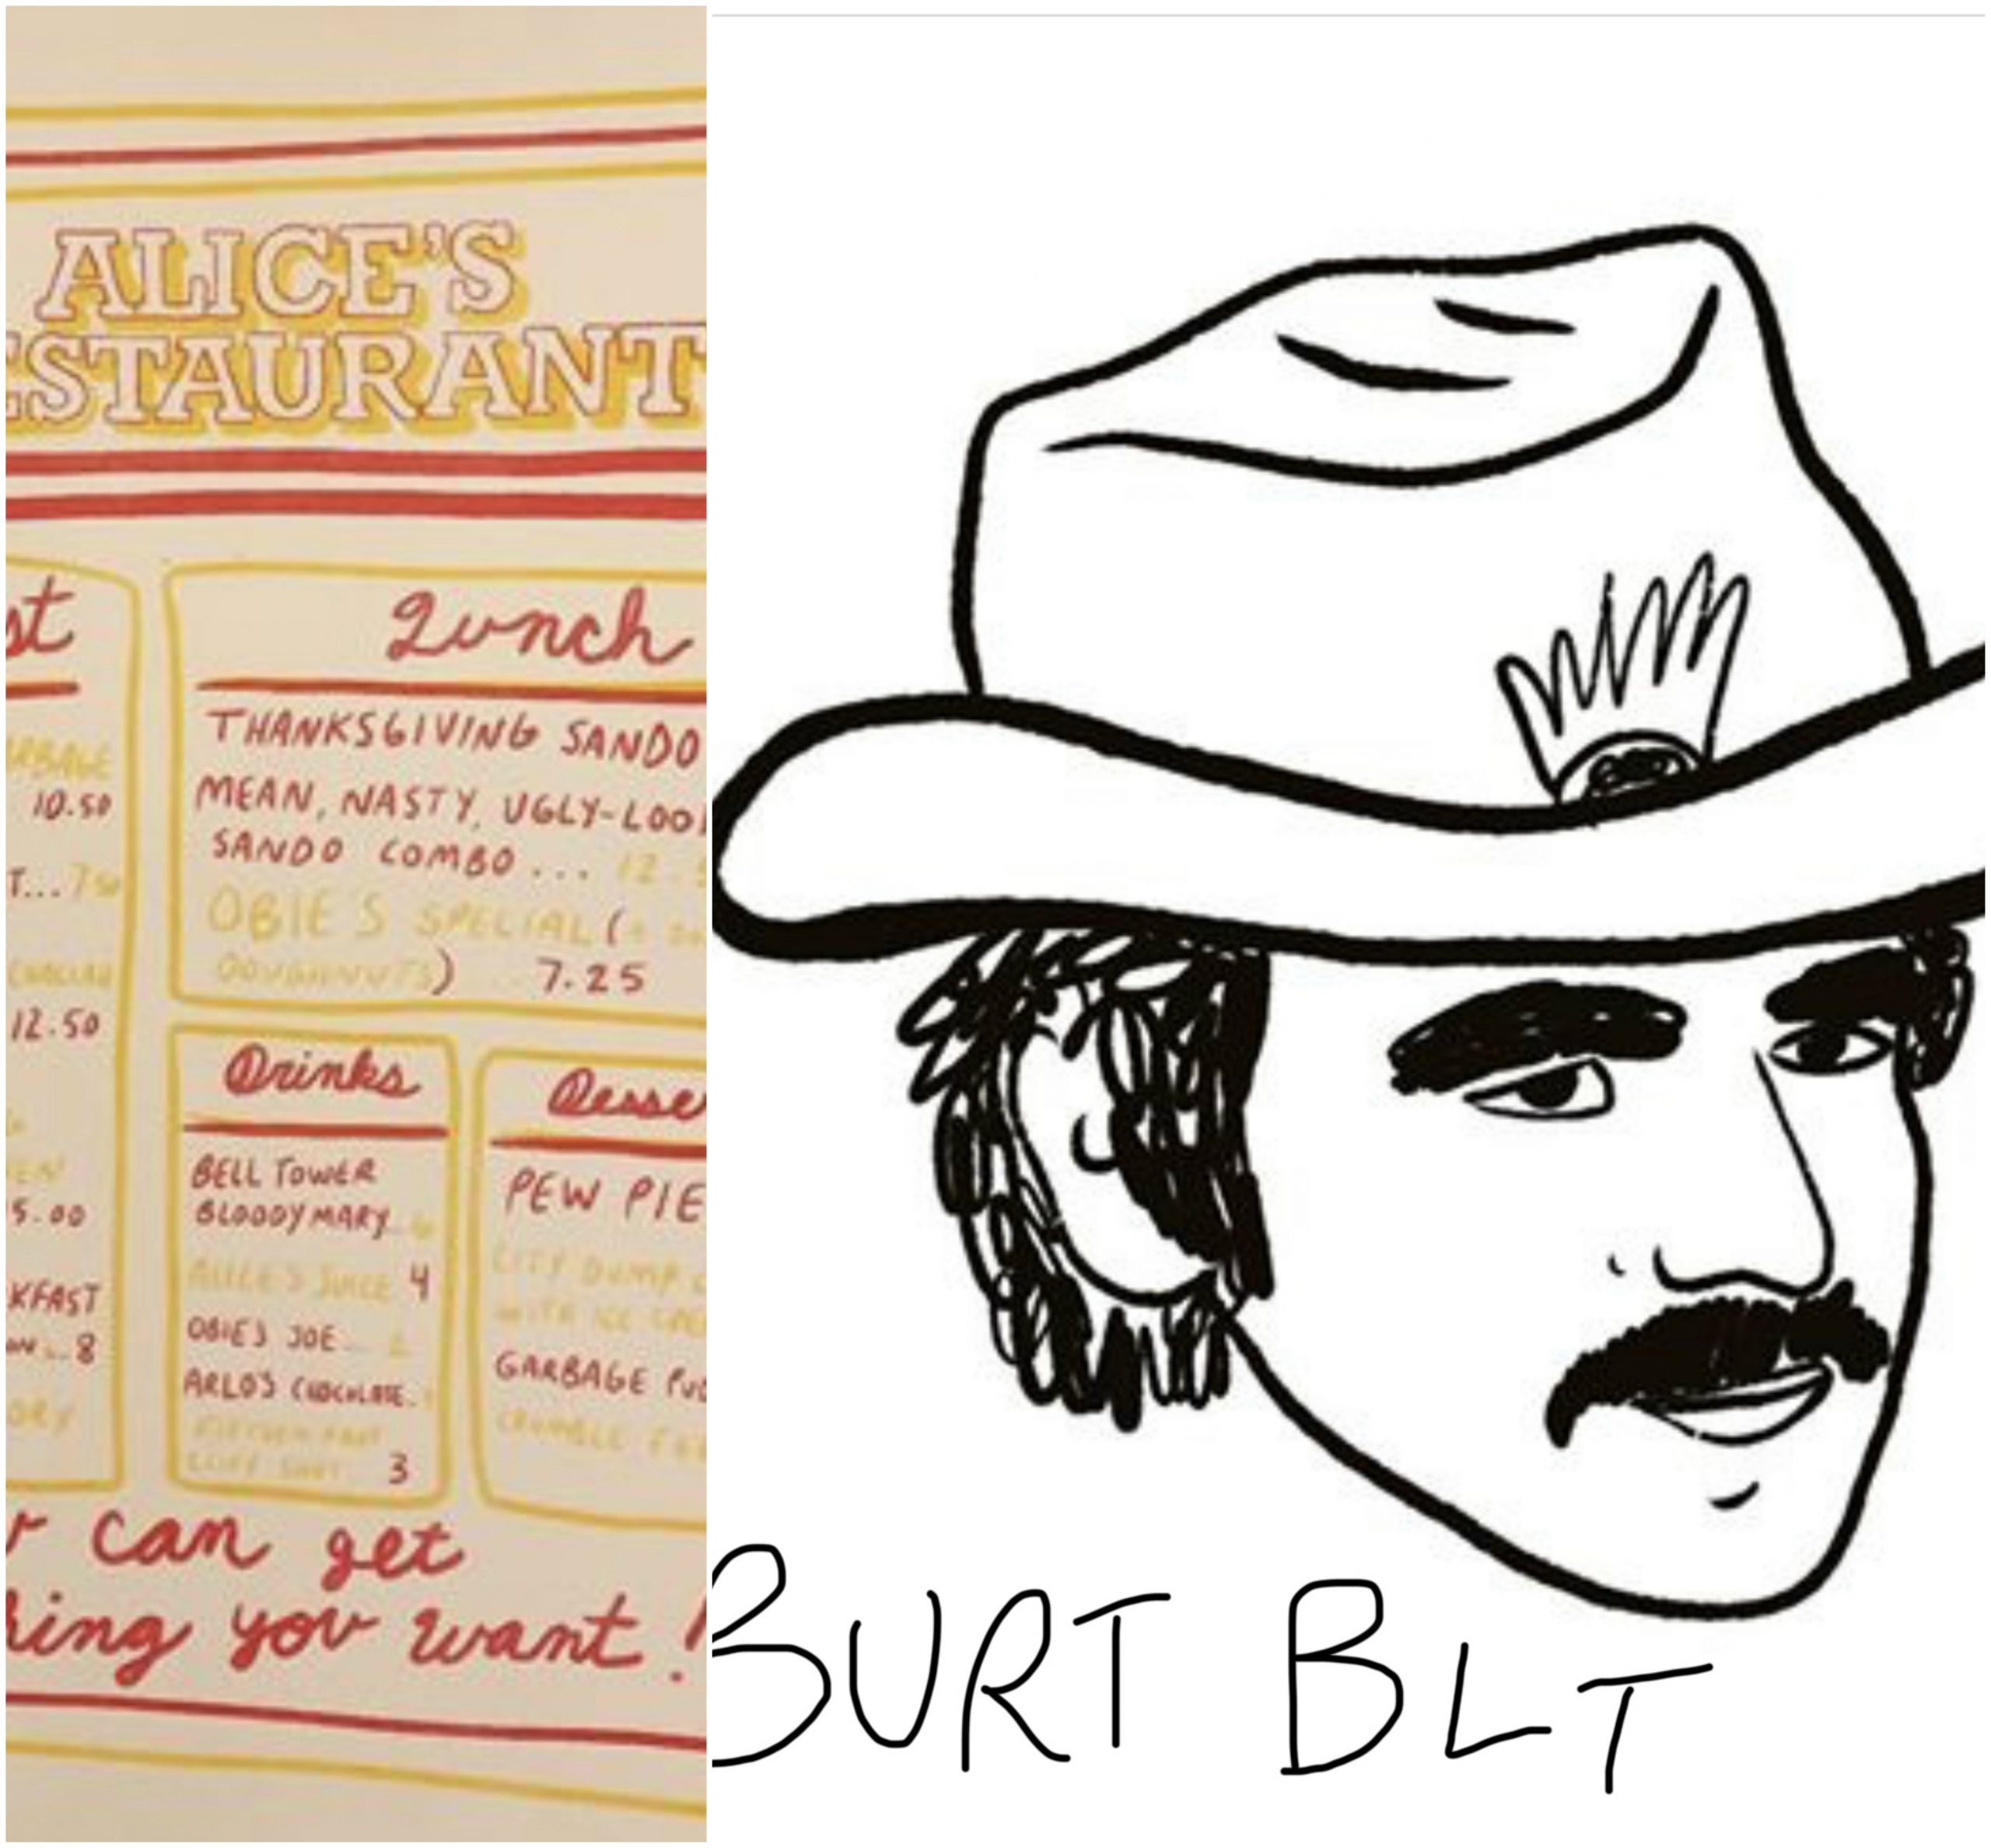 ALICE'S
ESTAURANT
st
RBAGE
10.50
T...750
12.50
EN
5.00
KFAST
8
ORY
Lunch
THANKSGIVING SANDO
MEAN, NASTY, UGLY-LOO
SANDO COMBO ... 12.5
OBIE'S SPECIAL (
DOUGHNUTS) 7.25
Drinks
BELL TOWER
BLOODY MARY
ALICE'S JUICE 4
OBIE'S JOE
ARLO'S CHOCOLATE
CLIFF SHOT 3
Desse
PEW PIE
CITY DUMP C
WITH ICE CRE
GARBAGE PUD
CRUMBLE
can get
hing you want!
BURT BLT